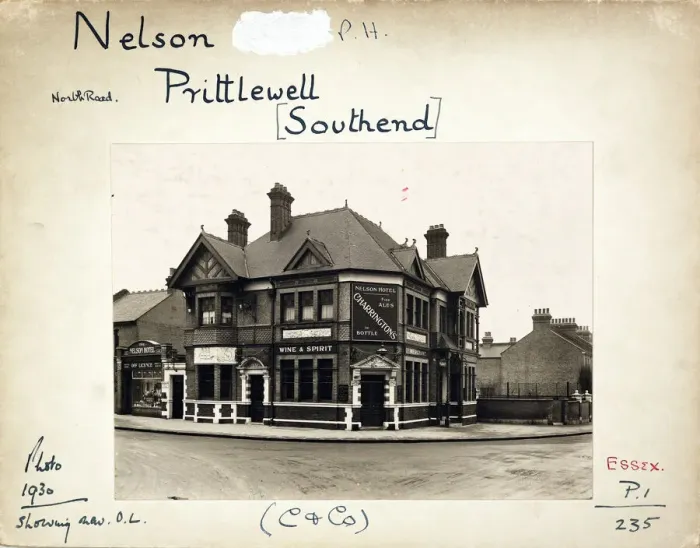 Nelson P.H.
North Road. Prittlewell
[Southend]
NELSON HOTEL
FINE
ALES
CHARRINGTONS
IN
BOTTLE
NELSON HOTEL
OFF LICENCE
WINE & SPIRIT
Photo
1930
Showing new. O.L.
(C & Co)
ESSEX.
P.1
235